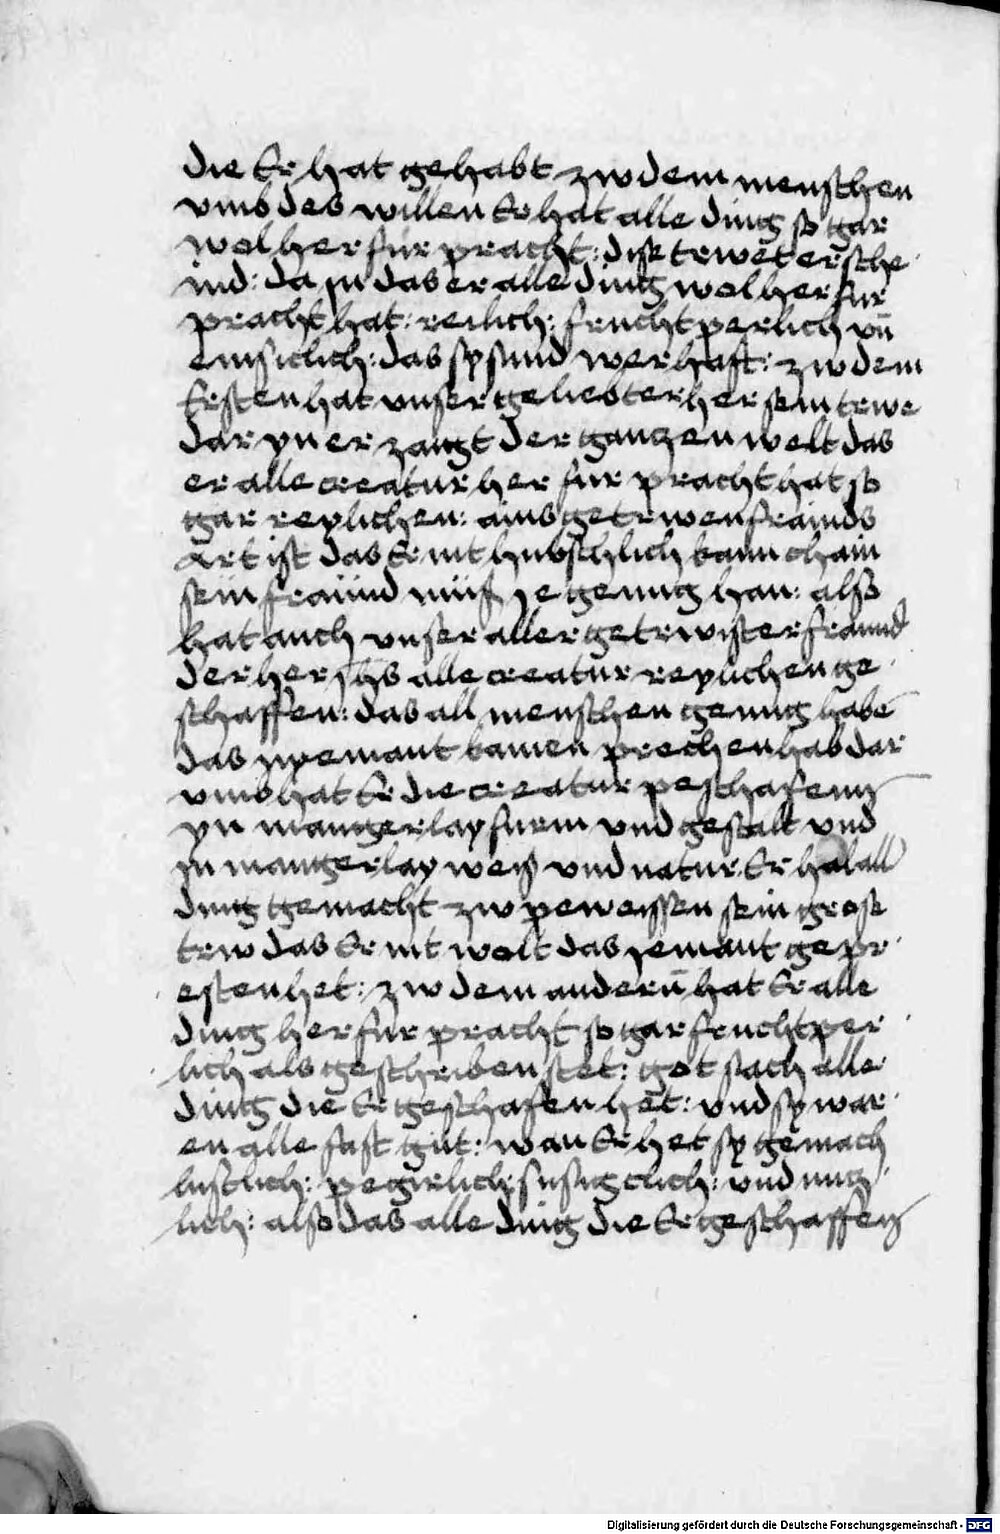 die Er hat gehabt zw dem menschen
vmb des willen Er hat alle ding so gar
wol her fur pracht: dise trwe ersche
ind: da in das er alle ding wol her fur
pracht hat: reilich: fruchtperlich vn̄
das sy sind werhaft: zw dem
Ersten hat vnser geliebter her sein trwe
dar yn er zaigt der gantzen welt das
er alle creatur her fur pracht hat so
gar reylichen: ains getrwen frainds
Art ist das Er nit hubschlich kann
sein fraünd müß ye genug han: also
hat auch vnser aller getrwister fraund
der her ihs alle creatur reylichen ge
schaffen: das all menschen genug habē
das nyemant kainen prechen hab dar
vmb hat Er die creatur peschafenn
yn mangerlay furm vnd gestalt vnd
in mangerlay weis vnd natur Er hat all
ding gemacht zw peweissen sein grose
trw das Er nit wolt das iemant gepr
esten het: zw dem anderū hat Er alle
ding her fur pracht so gar fruchtper
lich als geschriben stet: got sach alle
ding die Er geschafen het: vnd sy war
en alle fast gut: wan Er het sy gemach
lustlich: pegirlich: vnd nutz
lich: also das alle ding die Er geschaffen
Digitalisierung gefördert durch die Deutsche Forschungsgemeinschaft - DFG